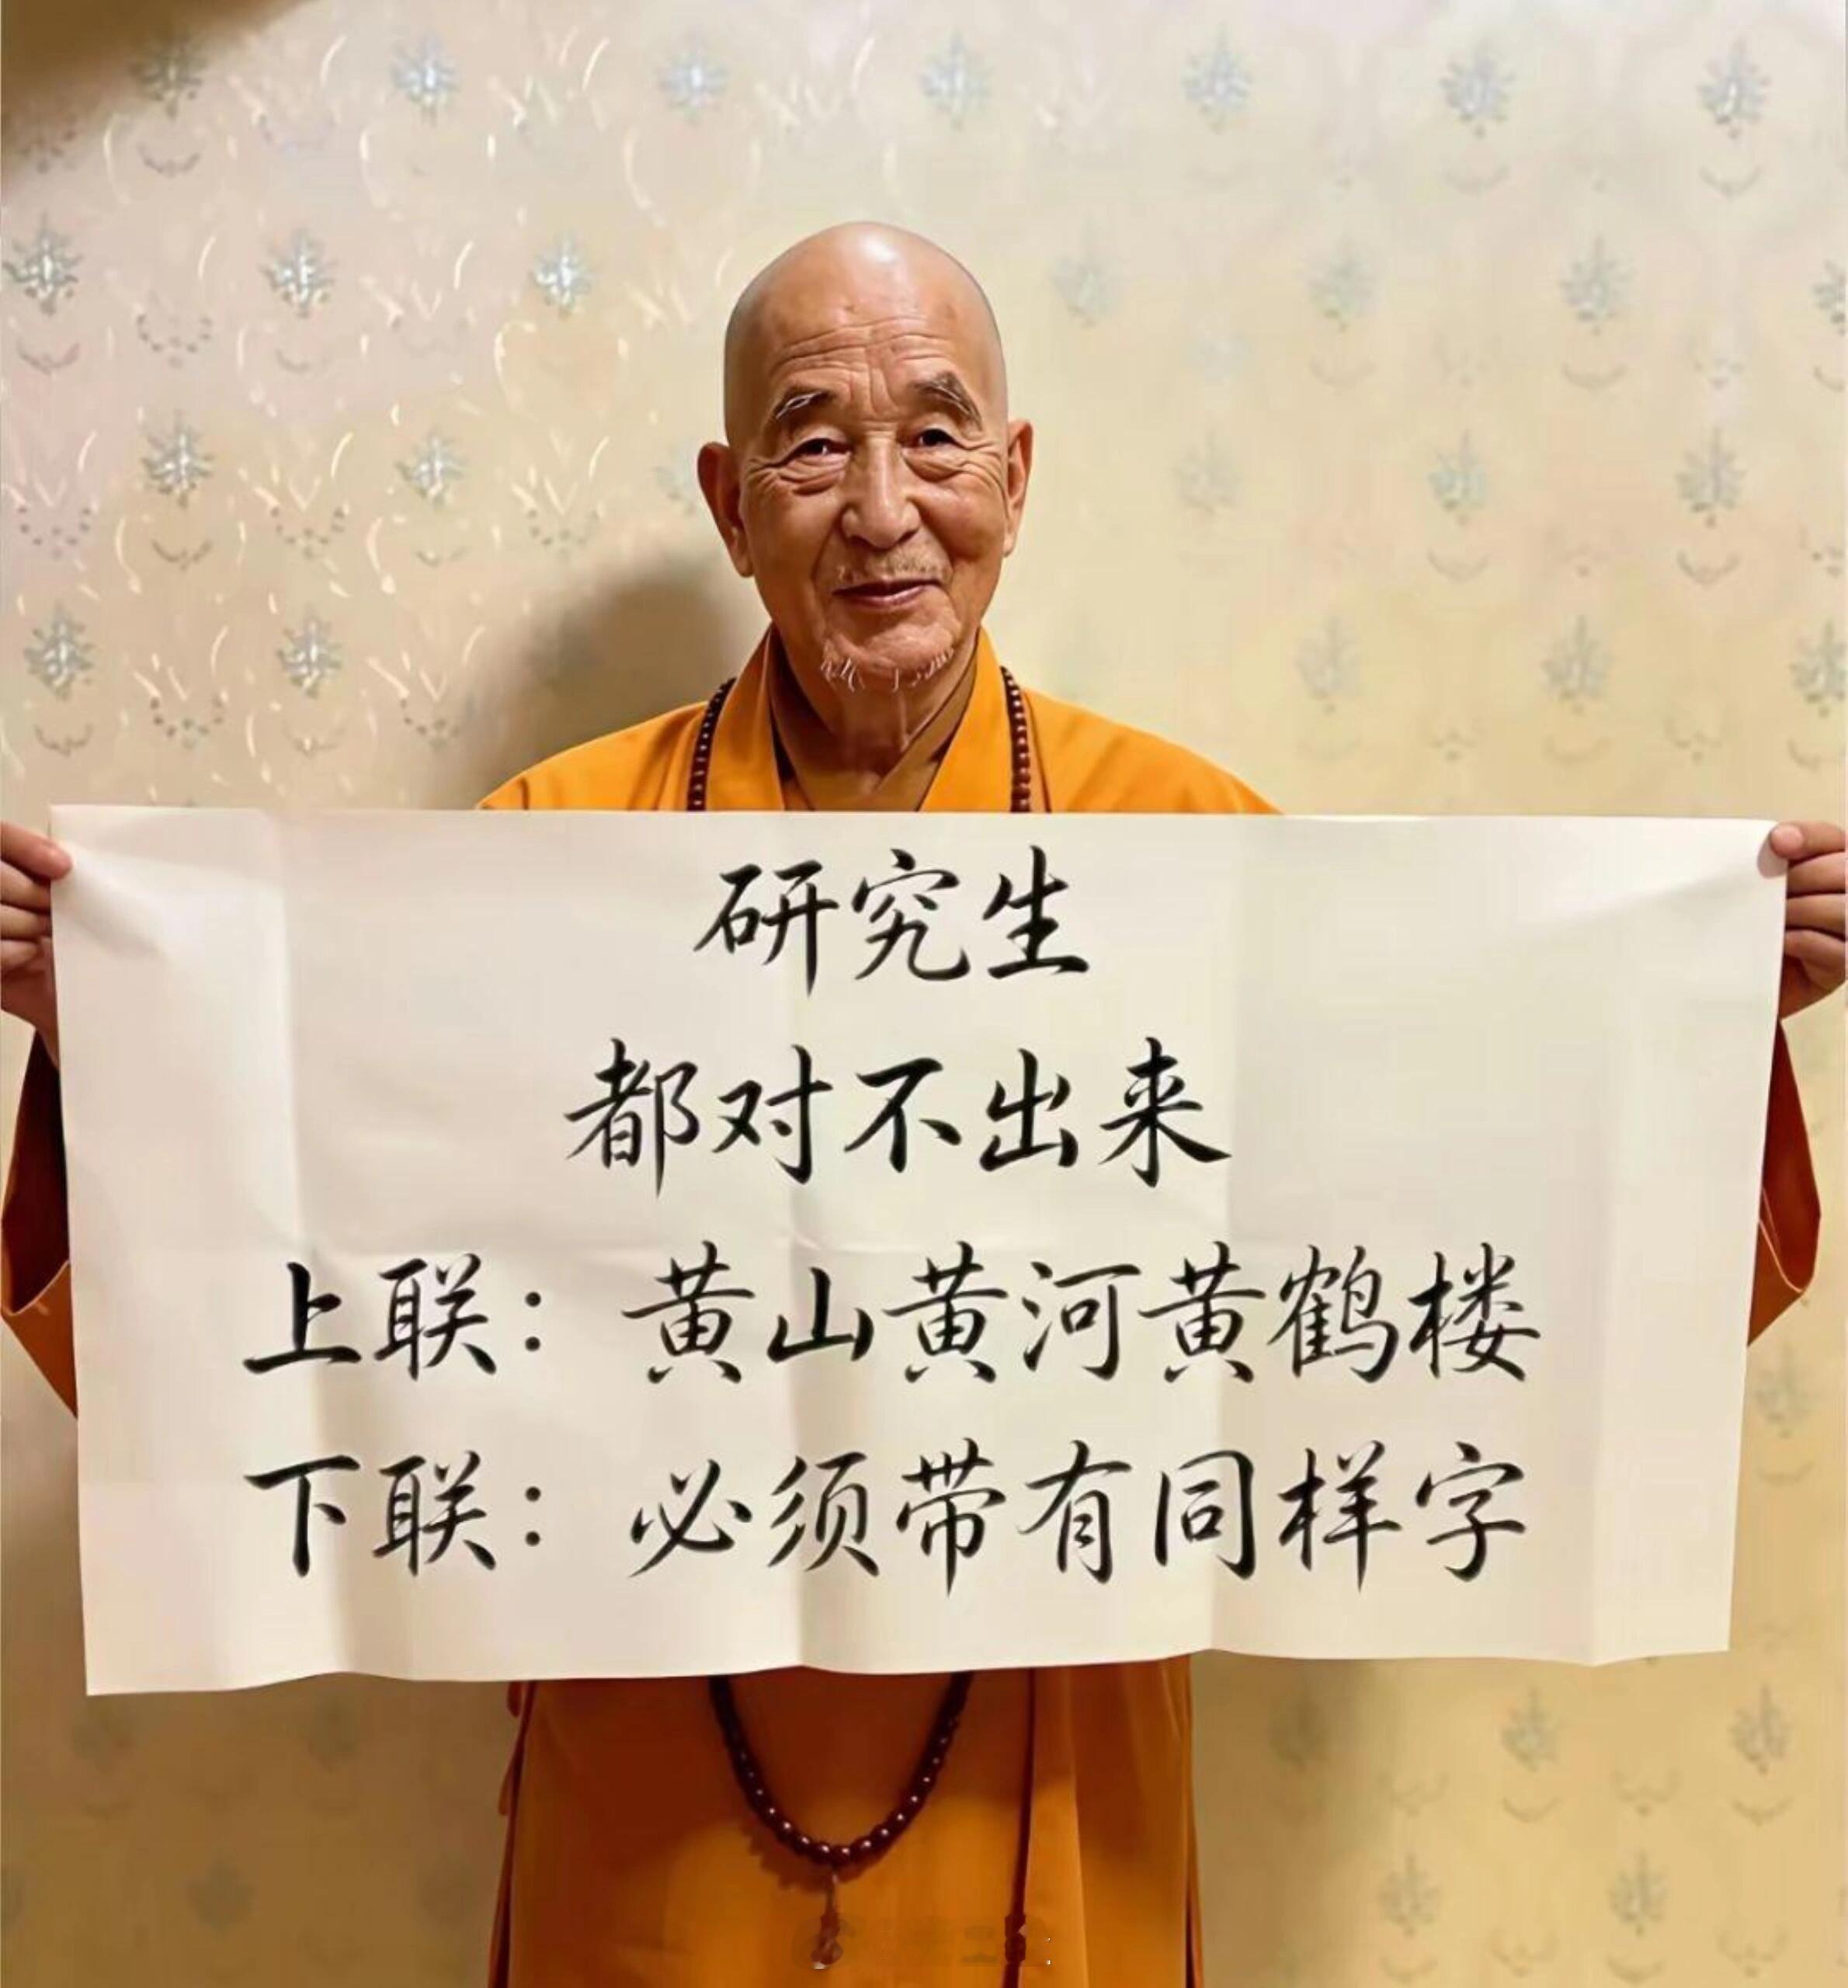 研究生
都对不出来
上联：黄山黄河黄鹤楼
下联：必须带有同样字